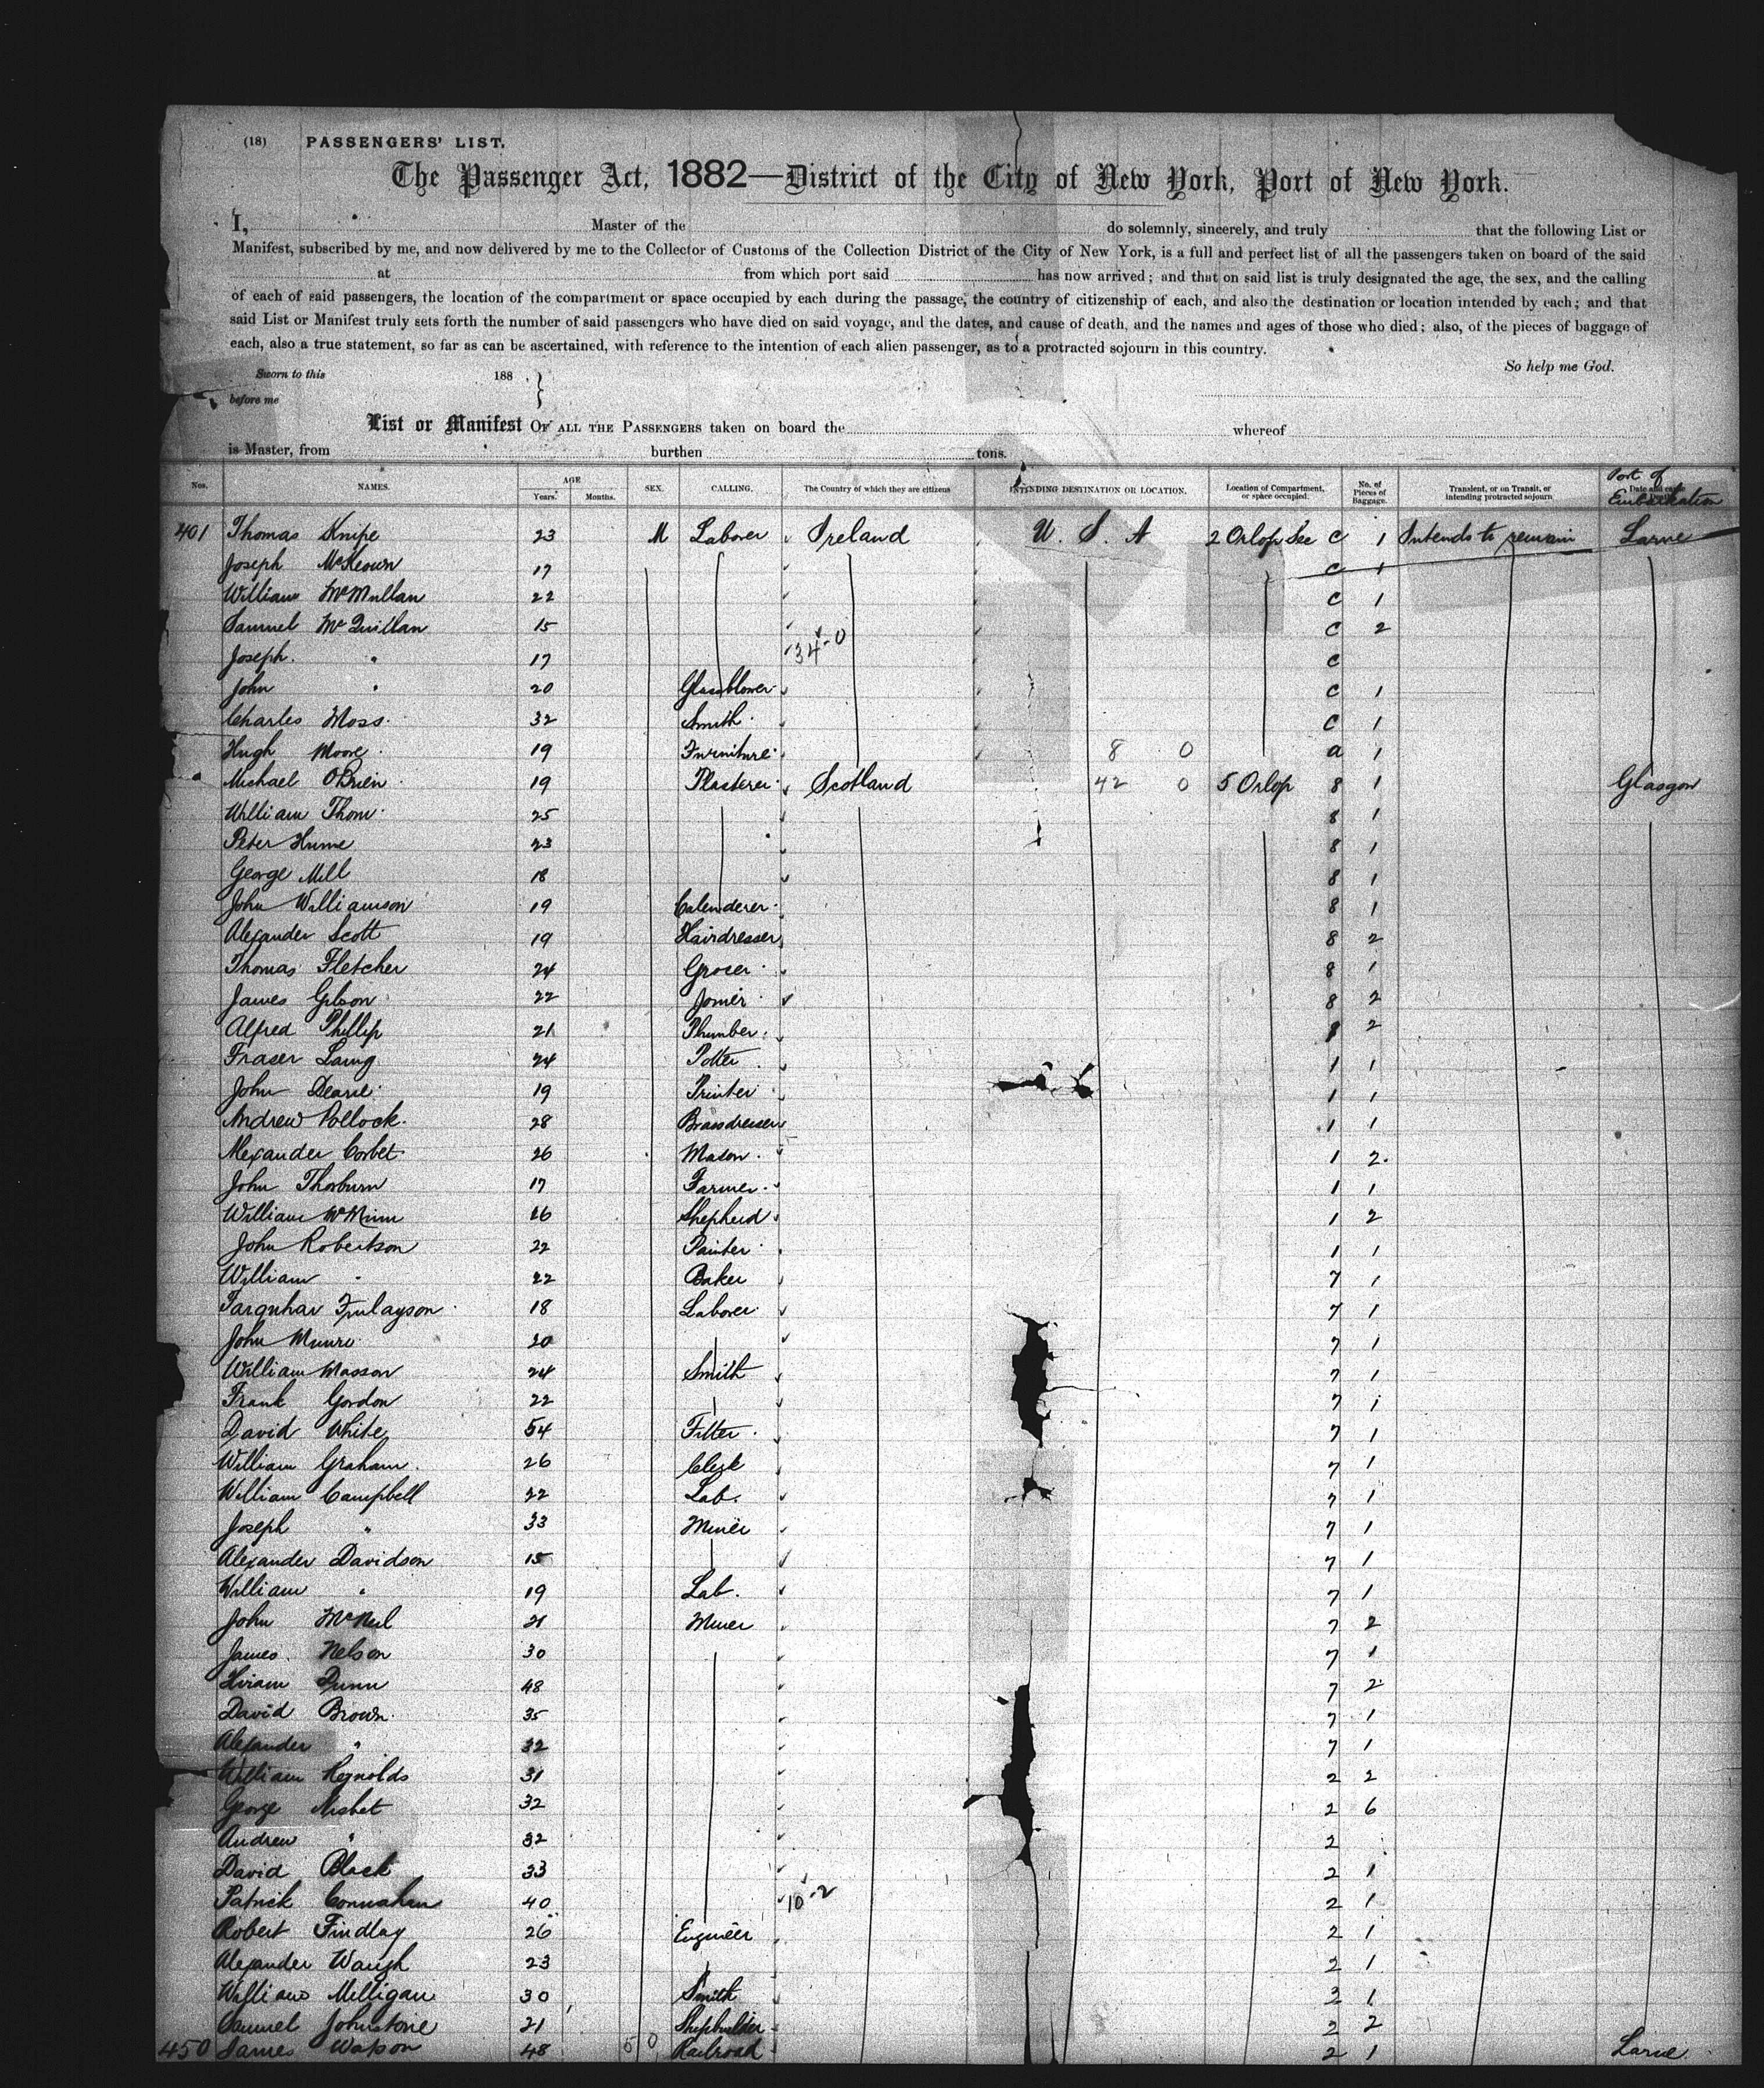 (18) PASSENGERS' LIST.
The Passenger Act, 1882—District of the City of New York, Port of New York.
I, Master of the do solemnly, sincerely, and truly that the following List or
Manifest, subscribed by me, and now delivered by me to the Collector of Customs of the Collection District of the City of New York, is a full and perfect list of all the passengers taken on board of the said
at from which port said has now arrived; and that on said list is truly designated the age, the sex, and the calling
of each of said passengers, the location of the compartment or space occupied by each during the passage, the country of citizenship of each, and also the destination or location intended by each; and that
said List or Manifest truly sets forth the number of said passengers who have died on said voyage, and the dates, and cause of death, and the names and ages of those who died; also, of the pieces of baggage of
each, also a true statement, so far as can be ascertained, with reference to the intention of each alien passenger, as to a protracted sojourn in this country.
So help me God.
Sworn to this 188
before me
List or Manifest OF ALL THE PASSENGERS taken on board the whereof
is Master, from burthen tons.
Nos. NAMES. AGE Years. Months. SEX. CALLING. The Country of which they are citizens INTENDING DESTINATION OR LOCATION. Location of Compartment, or space occupied. No. of Pieces of Baggage. Transient, or on Transit, or intending protracted sojourn Port of Embarkation
401 Thomas Knipe 23 M Laborer Ireland U. S. A 2 Orlop Sec C 1 Intends to remain Larne
Joseph McKeown 17 C 1
William McMullan 22 C 1
Samuel McQuillan 15 C 2
Joseph " 17 34-0 C
John " 20 Glassblower C 1
Charles Moss 32 Smith C 1
Hugh Moore 19 Furniture 8 0 a 1
Michael O'Brien 19 Plasterer Scotland 42 0 5 Orlop 8 1 Glasgow
William Thom 25 8 1
Peter Hume 23 8 1
George Mill 18 8 1
John Williamson 19 Calenderer 8 1
Alexander Scott 19 Hairdresser 8 2
Thomas Fletcher 24 Grocer 8 1
James Gibson 22 Joiner 8 2
Alfred Phillip 21 Plumber 8 2
Fraser Laing 24 Potter 1 1
John Dearie 19 Printer 1 1
Andrew Pollock 28 Brassdresser 1 1
Alexander Corbet 26 Mason 1 2
John Thorburn 17 Farmer 1 1
William McMinn 16 Shepherd 1 2
John Robertson 22 Painter 1 1
William " 22 Baker 7 1
Farquhar Finlayson 18 Laborer 7 1
John Munro 20 7 1
William Masson 24 Smith 7 1
Frank Gordon 22 7 1
David White 54 Fitter 7 1
William Graham 26 Clerk 7 1
William Campbell 22 Lab. 7 1
Joseph " 33 Miner 7 1
Alexander Davidson 15 7 1
William " 19 Lab. 7 1
John McNeil 21 Miner 7 2
James Nelson 30 7 1
Hiram Dunn 48 7 2
David Brown 35 7 1
Alexander " 32 7 1
William Reynolds 31 2 2
George Nisbet 32 2 6
Andrew " 32 2
David Black 33 2 1
Patrick Connahan 40 10-2 2 1
Robert Findlay 26 Engineer 2 1
Alexander Waugh 23 2 1
William Milligan 30 Smith 2 1
Samuel Johnstone 21 Shipbuilder 2 2
450 James Watson 48 50 Railroad 2 1 Larne